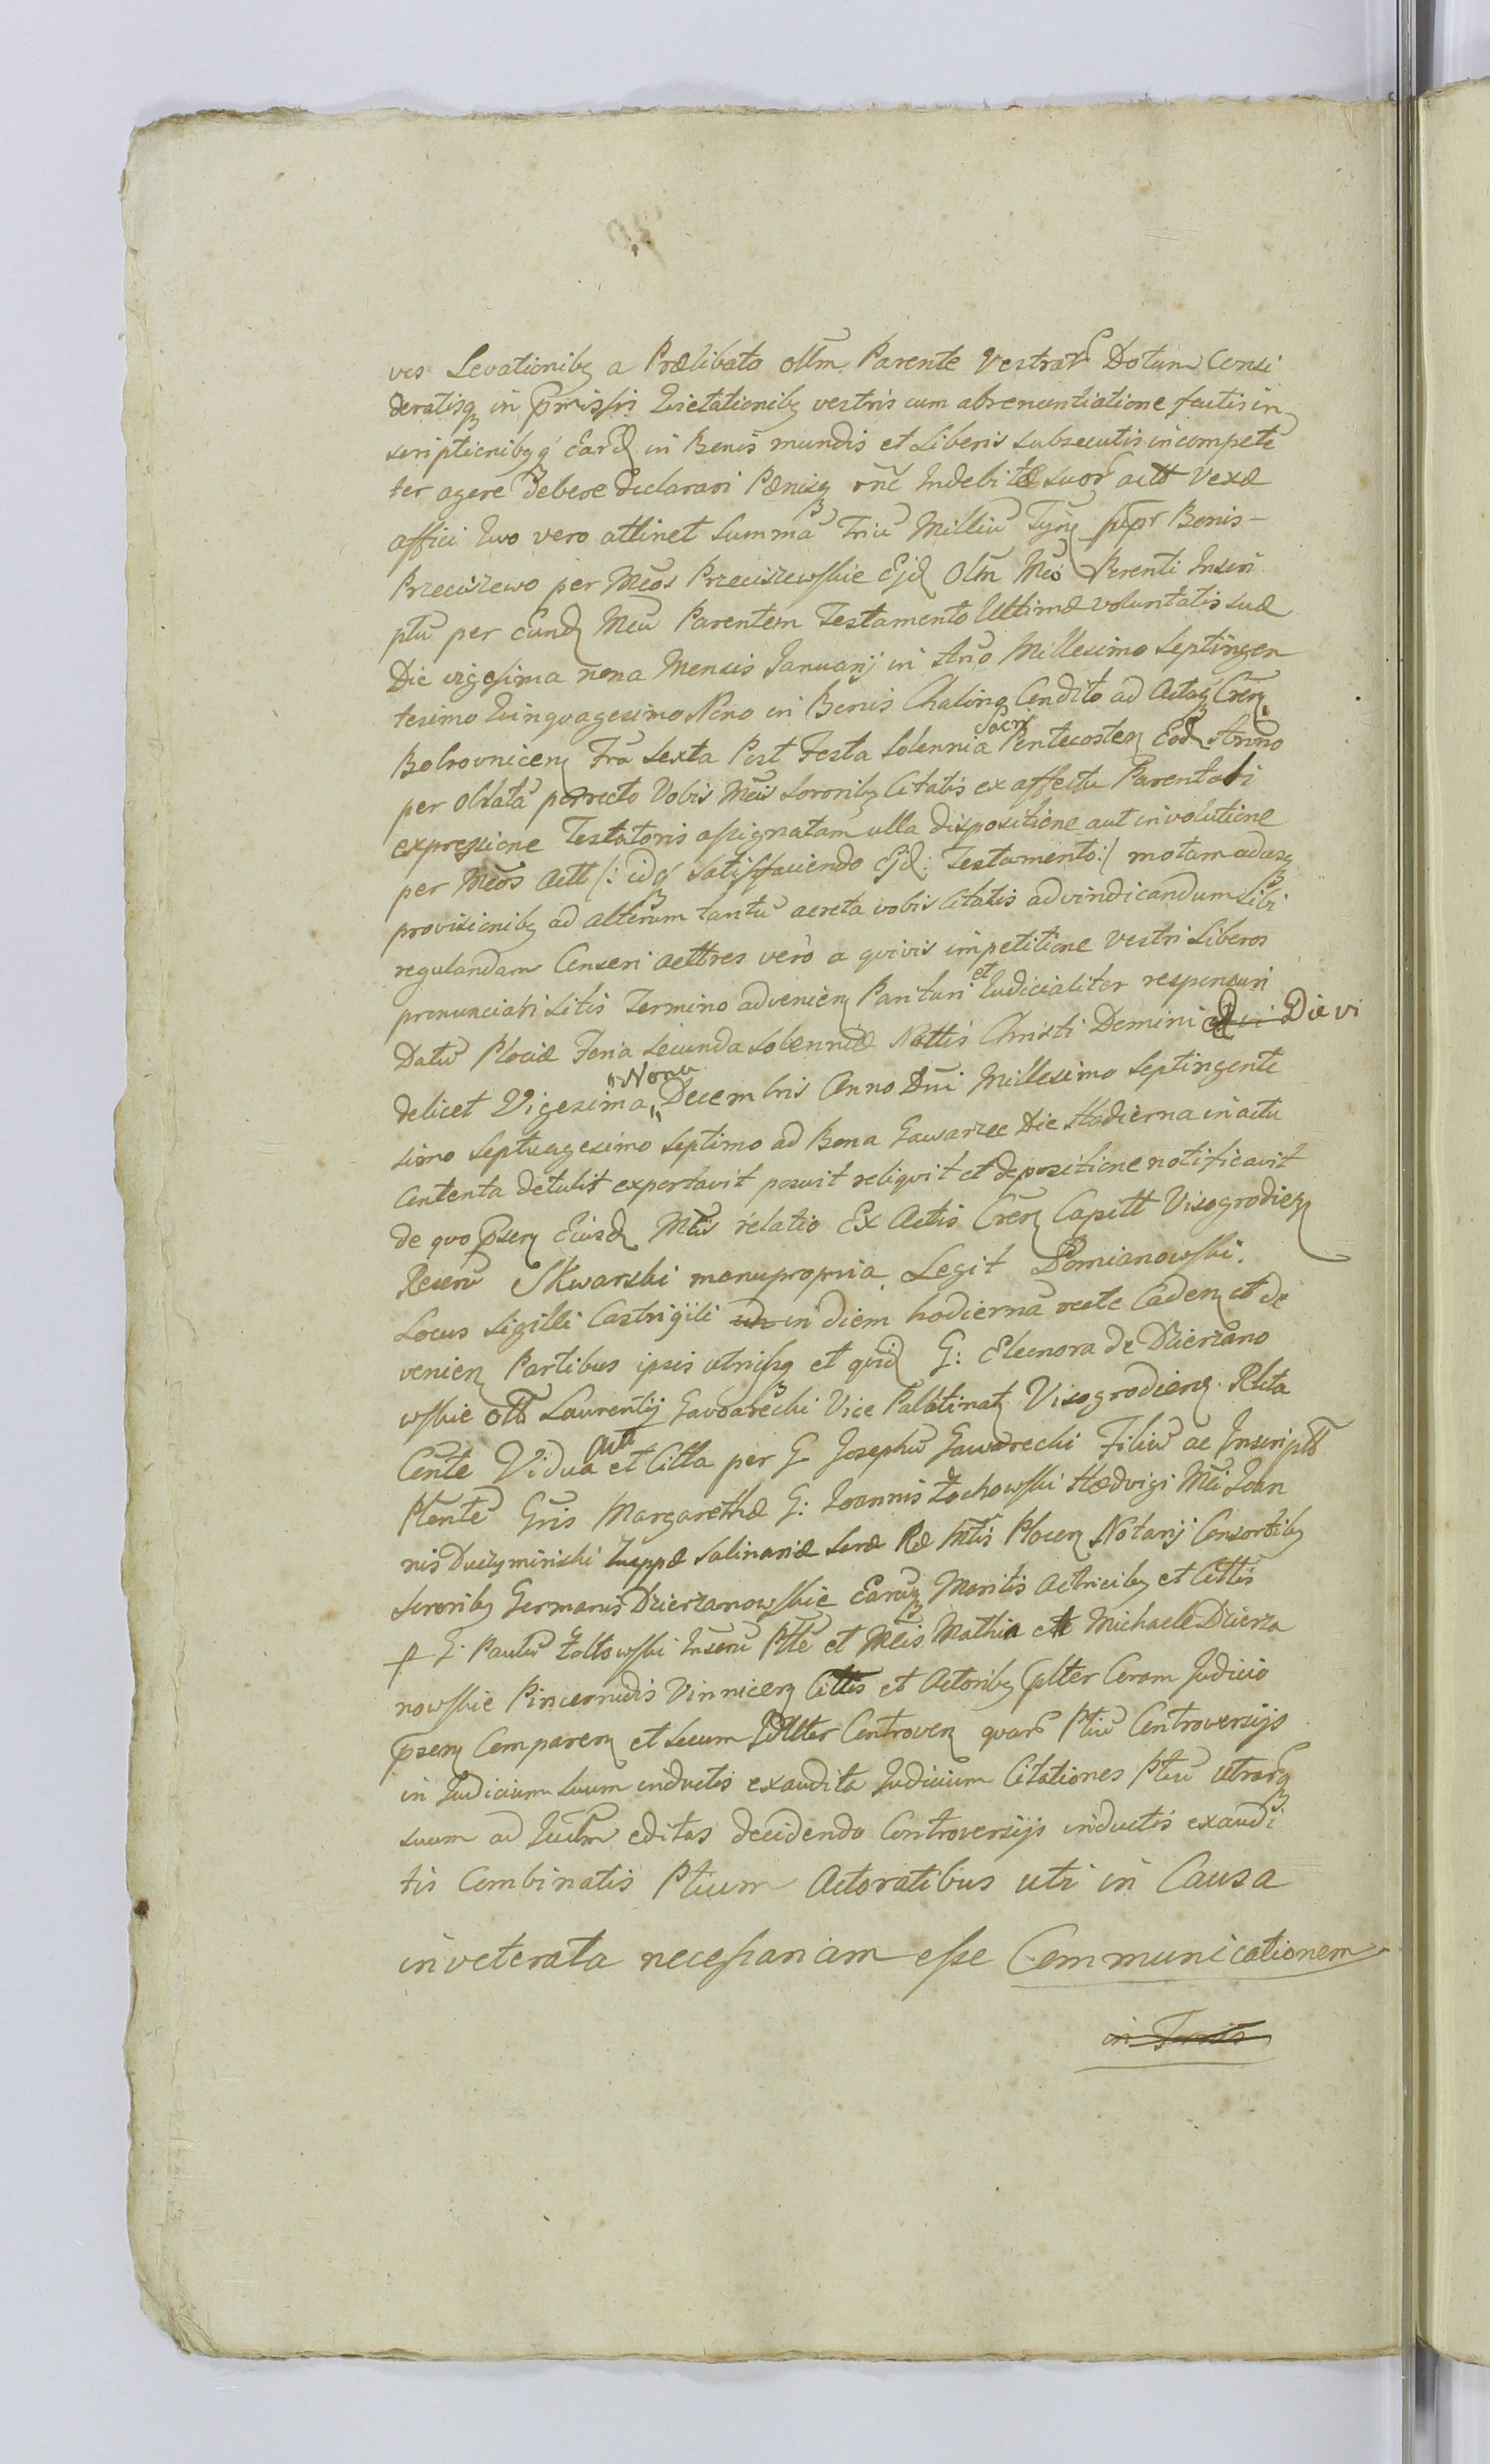 ves Levationibq a Prælibato olim Parente Vestrar Dotum Consi
deratisq in pmissis Quietationibq vestris cum abrenuntiatione factis in
scriptionibq q Eard in Bonis mundis et Liberis subsecutis incompete
ter agere debere declarari Pænisq rne Indebitæ suor actt Vexæ
affici Quo vero attinet Summa Triu Milliu Tynf supr Bonis
Przeciszewo per Mcos Przeciszewskie Ejd Olm Mco Parenti Inscri
ptu per eund Mcu Parentem Testamento Ultimæ voluntatis suæ
Die vigesima nona Mensis Januarij in Ano Millesimo Septingen
tesimo Quinquagesimo Nono in Bonis Chalino Condito ad Actaq Cren
Bobrovnicen Fra Sexta Post Festa Solennia Sacri Pentecosten Eod Anno
per Oblata porrecto Vobis Mcis Sororibq Citatis ex affectu Parentali
expressione Testatoris assignatam ulla dispositione aut involutione
per Mcos Actt /: idq satisfaciendo Ejd: Testamento :/ motam adusq
provisionibq ad alterum tantu acreta vobis Citatis ad vindicandum Sibi
regulandam Censeri Acttres vero a quivis impetitione Vestri Liberos
pronunciari Litis Termino advenien Parituri et Judicialiter responsuri
Datu Plociæ Feria Secunda Solennitæ Nattis Christi Domini Die vi
delicet Vigesima "Nona" Decembris Anno Dni Millesimo Septingente
simo Septuagesimo Septimo ad Bona Gawarzec Die Hodierna in actu
Contenta detulit exportavit posuit reliquit et depositione notificavit
de quo psen Eiusd Mtis relatio Ex Actis Cren Capitt Visogrodien
Rescru Skwarski manupropria. Legit Domianowski.
Locus Sigilli Castrijili in diem hodierna recte Caden et de
venien Partibus ipsis utrisq et quid G: Eleonora de Dzierzano
wskie Olb Laurentij Gavoarecki Vice Palatinatq Visogrodieng Rlta
Cente Vidua Acta et Citta per G Josephu Gawarecki Filiu ac Inscriptt
Plente Gris Margarethæ G: Joannis Łochowski Hedvigi Mci Joan
nis Duczyminski Zuppæ Salinariæ Seræ Ræ Mtis Plocen Notarij Consortibq
Sororibq Germanis Dzierzanowskie Earuq Maritis Actricibq et Cittis
p G Paulu Żołtowski Inscru Ptte et Mcis Mathia et Michaele Dzierza
nowskie Pincernidis Vinnicen Cittis et Actoribq pltter Coram Judicio
psen Comparen et Secum Idltter Controven quar Ptiu Controversijs
in Judicium Suum inductis exaudita Judicium Citationes Ptiu utrarq
suum ad Juclm editas decidendo Controversijs inductis exaudi
tis Combinatis Ptium Actoratibus uti in Causa
inveterata necessariam esse Communicationem